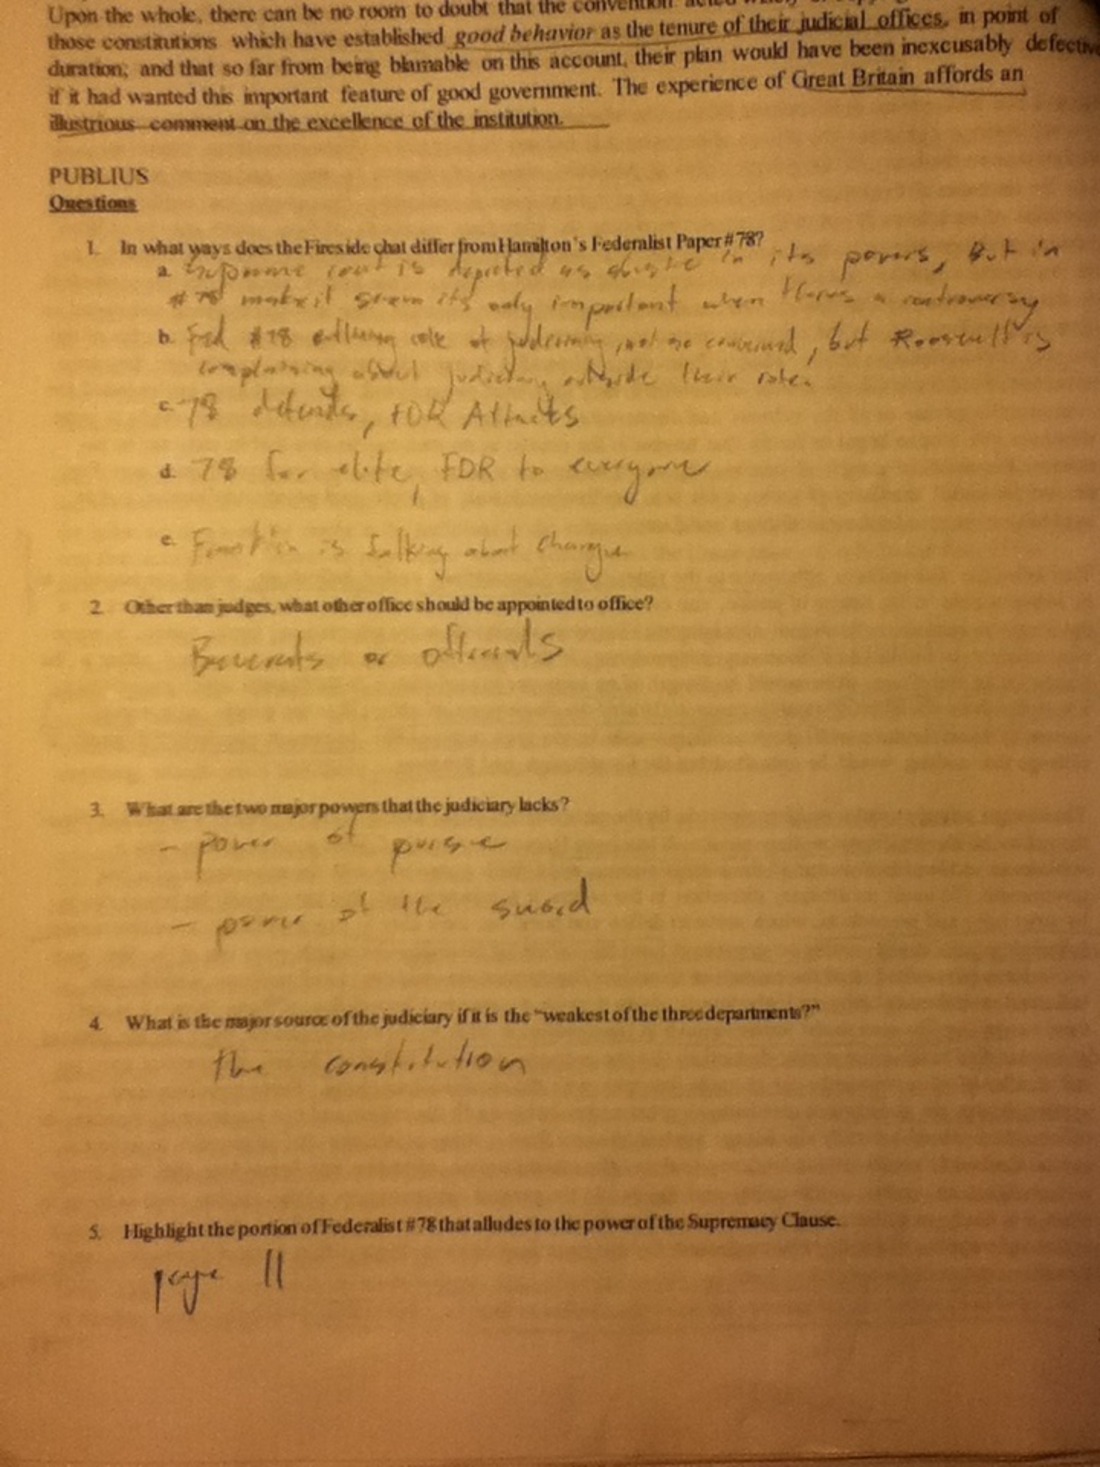 Upon the whole, there can be no room to doubt that the convention acted
those constitutions which have established good behavior as the tenure of their judicial offices, in point of
duration; and that so far from being blamable on this account, their plan would have been inexcusably defective
if it had wanted this important feature of good government. The experience of Great Britain affords an
illustrious comment on the excellence of the institution.
PUBLIUS
Questions
1. In what ways does the Fireside chat differ from Hamilton's Federalist Paper #78?
a. Supreme court is depicted as in its powers, But in
#78 make it seem its only important when theres a controversy
b. Fed #78 role of , but Roosevelt is
complaining about judiciary outside their role.
c. 78 defends, FDR Attacks
d. 78 for elite, FDR to everyone
e. is talking about change
2. Other than judges, what other office should be appointed to office?
or officials
3. What are the two major powers that the judiciary lacks?
- power of purse
- power of the sword
4. What is the major source of the judiciary if it is the "weakest of the three departments?"
the constitution
5. Highlight the portion of Federalist #78 that alludes to the power of the Supremacy Clause.
page 11